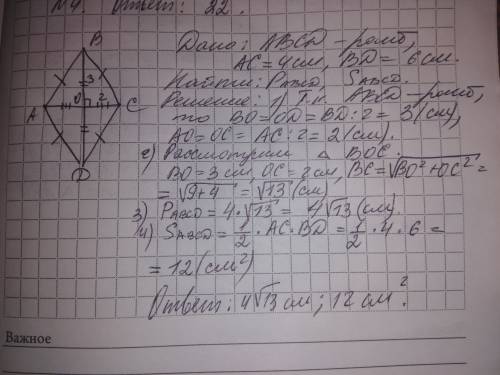 N4. Ответ: 32.
Дано: ABCD - ромб,
AC = 4 см, BD = 6 см.
Найти: PABCD, SABCD.
Решение: 1) Т.к. ABCD - ромб,
то BO = OD = BD : 2 = 3 (см),
AO = OC = AC : 2 = 2 (см).
2) Рассмотрим △ BOC:
BO = 3 см, OC = 2 см, BC = √BO² + OC² =
= √9+4 = √13 (см)
3) PABCD = 4 · √13 = 4√13 (см).
4) SABCD = 1/2 · AC · BD = 1/2 · 4 · 6 =
= 12 (см²)
Ответ: 4√13 см; 12 см².
B
3
A O 2 C
D
Важное